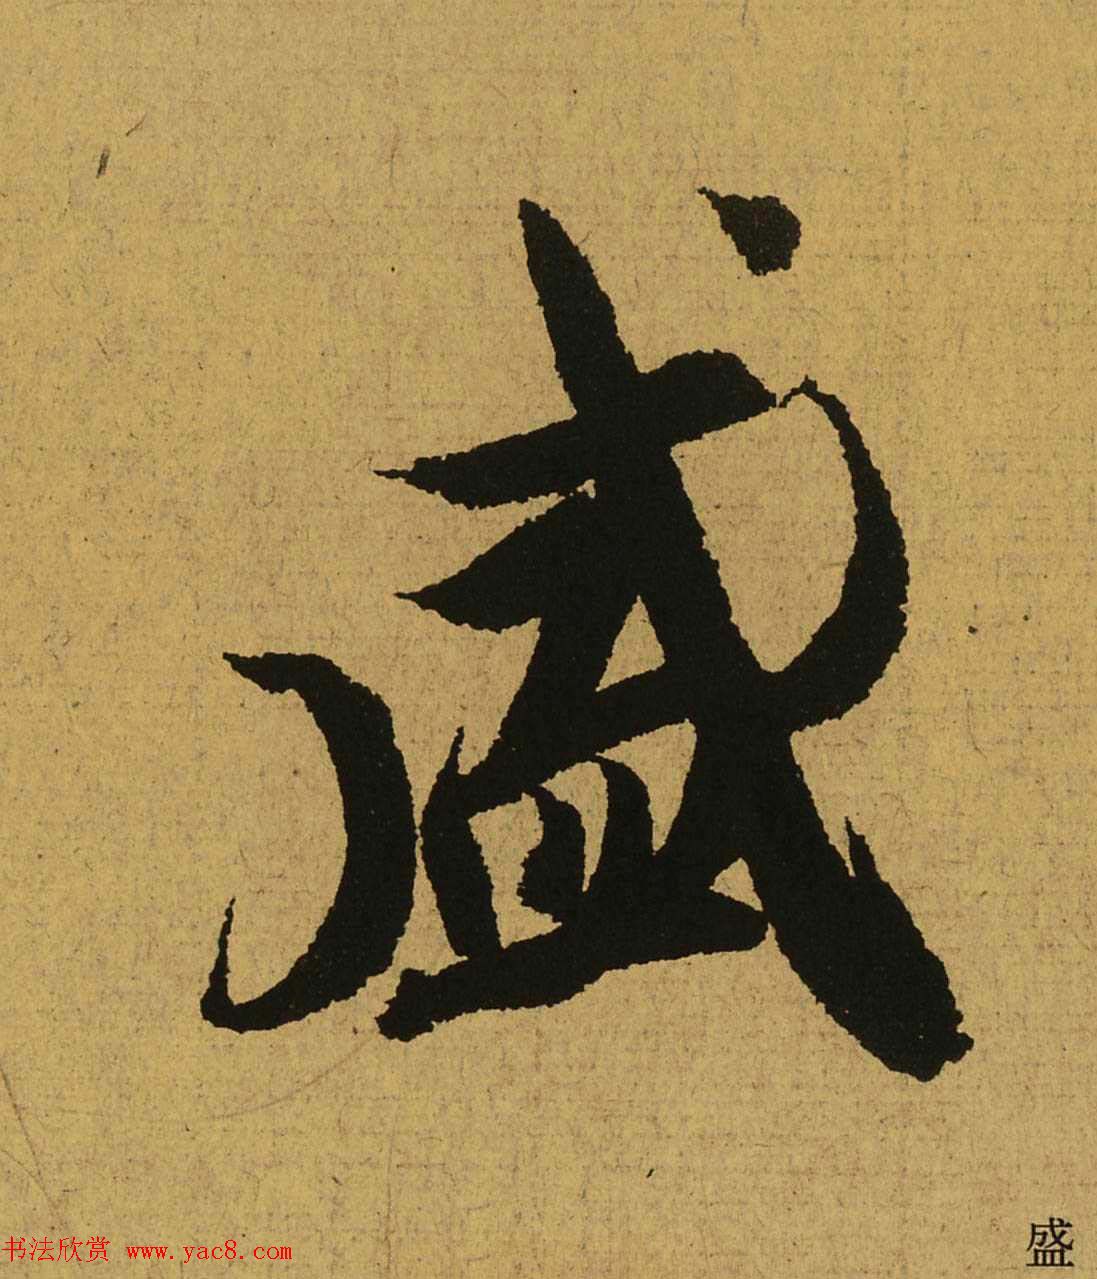 盛
书法欣赏 www.yac8.com
盛